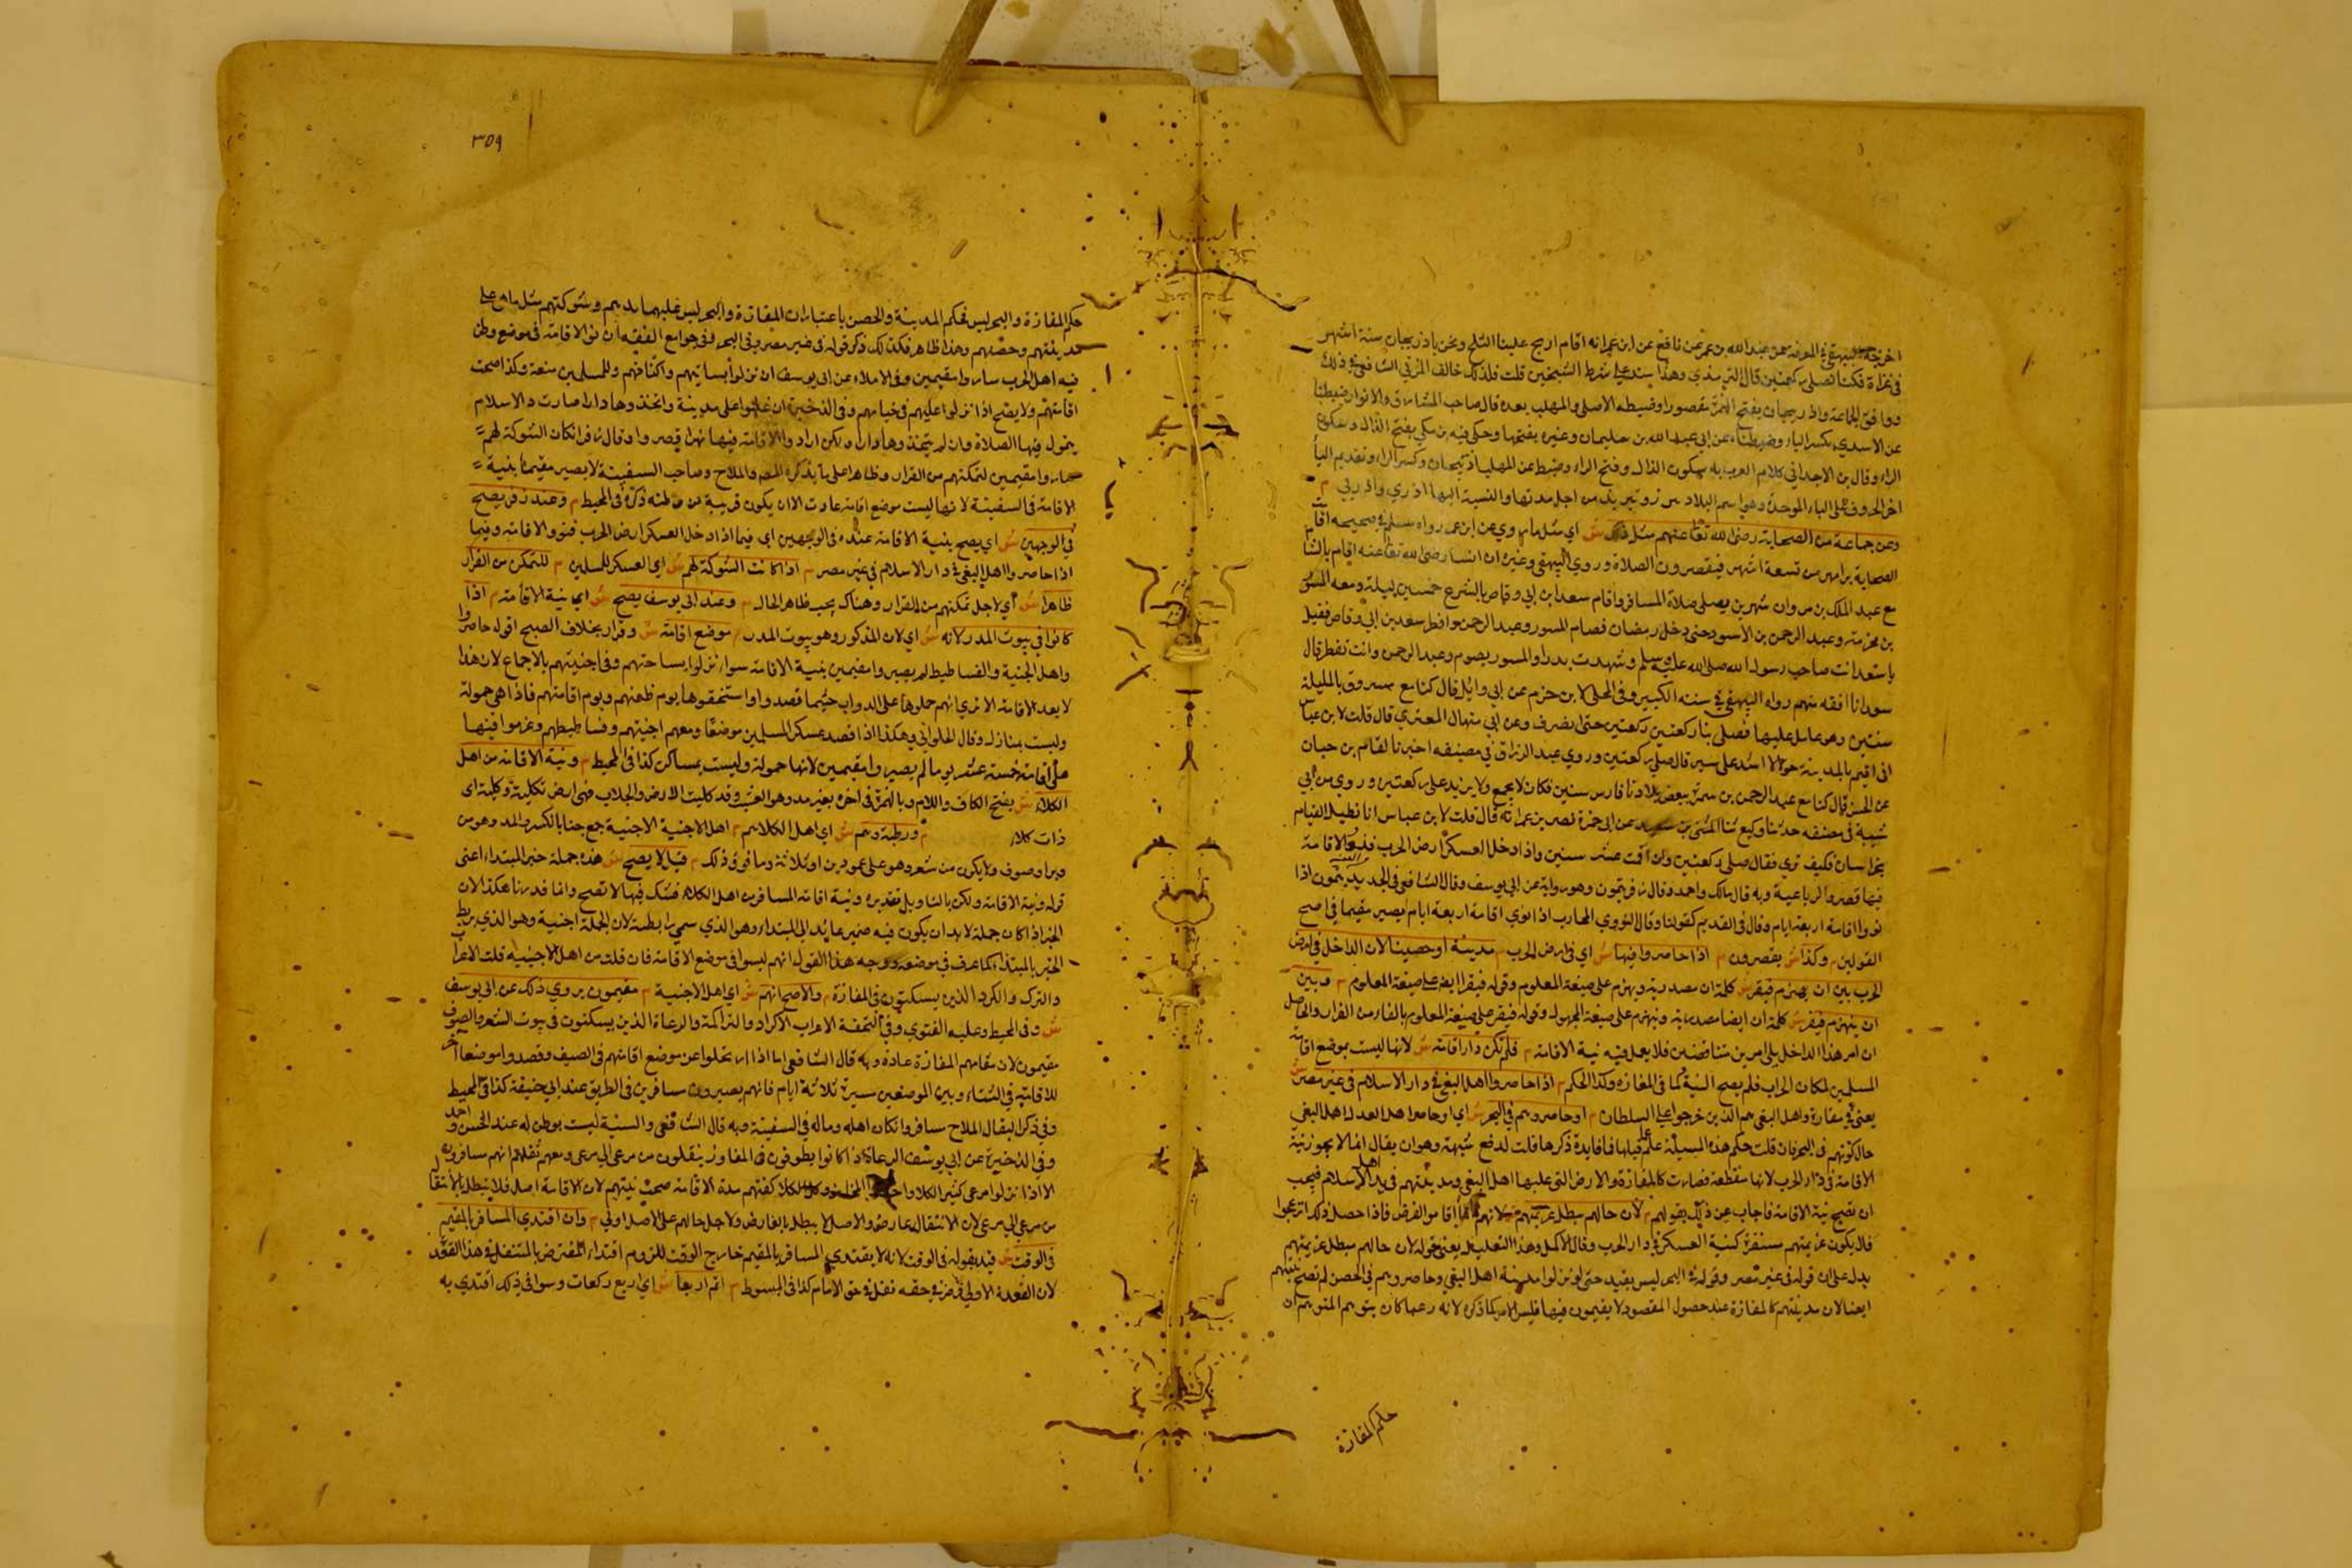 اخرجه البيهقي في المعرفة عن عبد الله بن عمر عن نافع عن ابن عمر انه اقام اريح علينا الثلج ونحن باذربيجان ستة اشهر
في غزاة فكنا نصلي ركعتين قال الترمذي وهذا سند على شرط الشيخين قلت فلذلك خالف المزني الشافعي في ذلك
ووافق الجماعة واذربيجان بفتح الهمزة مقصورا وضبطه الاصلي والمهلب بعده قال صاحب المشارق والانوار ضبطنا
عن الاسدي بكسر الباء وضبطناه عن ابي عبد الله بن سليمان وغيره بفتحها وحكى فيه بن مكي بفتح الذال وسكون
الراء وقال بن الاجدابي كلام العرب به سكون الذال وفتح الراء وضبط عن المهلب اذ يبجان وكسر الراء وتقديم اليا
اخر الحروف على الباء الموحدة وهو اسم البلاد من اجل مدنها والنسبة اليها اذري واذربي م
وعن جماعة من الصحابة رضى الله تعا عنهم مثل ذلك ش اي مثل ما روي عن ابن عمر رواه مسلم في صحيحه اقام
الصحابة برامهرمز تسعة اشهر فيقصرون الصلاة وروي البيهقى وغيره ان انسا رضى الله تعا عنه اقام بالشام
مع عبد الملك بن مروان شهرين يصلى صلاة المسافر واقام سعد ابن ابي وقاص بالشرع خمسين ليلة ومعه المسور
بن مخرمة وعبد الرحمن بن الاسود حتى دخل رمضان فصام المسور وعبد الرحمن وافطر سعد بن ابي وقاص فقيل
يا سعد انت صاحب رسول الله صلى الله عليه وسلم وشهدت بدرا والمسور يصوم وعبد الرحمن وانت تفطر قال
سعد انا افقه منهم رواه البيهقي في سننه الكبير وفى المحلى لابن حزم عن ابي وائل قال كنا مع مسروق بالسلسلة
سنتين وهو عامل عليها فصلى بنا ركعتين ركعتين حتى انصرف وعن ابي منهال العنزي قال قلت لابن عباس
انى اقيم بالمدينة حولا لا اشد على سير قال صلى ركعتين وروي عبد الرزاق في مصنفه اخبرنا هشام بن حسان
عن الحسن قال كنا مع عبد الرحمن بن سمرة ببعض بلاد فارس سنين فكان لا يجمع ولا يزيد على ركعتين وروي بن ابي
شيبة في مصنفه حدثنا وكيع ثنا المثنى بن سعيد عن ابي جمرة نصر بن عمران قال قلت لابن عباس انا نطيل القيام
بخراسان فكيف تري فقال صلى ركعتين وان اقت عشر سنين واذا دخل العسكر ارض الحرب فنووا الاقامة
فيها قصروا الرباعية وبه قال مالك واحمد وقال زفر يتمون وهو رواية عن ابي يوسف وقال الشافعي في الجديد يتمون اذا
نووا اقامة اربعة ايام وقال في القديم كقولنا وقال النووي المحارب اذا نوي اقامة اربعة ايام يصير مقيما في اصح
القولين م وكذا ش يقصرون م اذا حاصروا فيها ش اي في ارض الحرب م مدينة او حصنا لان الداخل في ارض
الحرب بين ان يهزم فيقر ش كلمة ان مصدرية ويهزم على صيغة المعلوم وقوله فيقر ايضا على صيغة المعلوم م وبين
ان ينهزم فيفر ش كلمة ان ايضا مصدرية وينهزم على صيغة المجهول وقوله فيفر على صيغة المعلوم بالفاء من الفرار والحاصل
ان امر هذا الداخل بين امرين متناقضين فلا يعمل فيه نية الاقامة م فلم تكن دار اقامة ش لانها ليست بموضع اقامة
المسلمين لمكان الحراب فلم يصح النية كما في المفازة وكذا الحكم م اذا حاصروا اهل البغي في دار الاسلام في غير مصر ش
يعنى في مفازة واهل البغي هم الذين خرجوا على السلطان م او حاصروهم في البحر ش اي او حاصر اهل العدل اهل البغي
حال كونهم في البحر فان قلت حكم هذه المسئلة علم مما قبلها فما فايدة ذكرها قلت لدفع شبهة وهو ان يقال انما لا يجوز نية
الاقامة في دار الحرب لانها منقطعة فصارت كالمفازة والارض التى عليها اهل البغي ومدينتهم في يد اهل الاسلام فيجب
ان تصح نية الاقامة فاجاب عن ذلك بقوله م لان حالهم مبطل عزيمتهم ش لانهم انما اقاموا لغرض فاذا حصل ذلك انزعجوا
فلا يكون عزيمتهم مستقرة كنية العسكر في دار الحرب وقال الاكمل وهذا التعليل يعنى قوله لان حالهم مبطل عزيمتهم
يدل على ان قوله في غير مصر وقوله في البحر ليس بقيد حتى لو نزلوا مدينة اهل البغي وحاصروهم في الحصن لم تصح نيتهم
ايضا لان مدينتهم كالمفازة عند حصول المقصود لا يقيمون فيها فليس الامر كما ذكره لانه ربما كان يتوهم المتوهم ان
حكم المفازة
٣٥٩
حكم المفازة والبحر ليس كحكم المدينة والحصن باعتبار ان المفازة والبحر ليس عليهما يدهم وشوكتهم مثل ما على
مدينتهم وحصنهم وهذا ظاهر فكذلك ذكر قوله في غير مصر وفي البحر وفي جوامع الفقه ان نوا الاقامة في موضع وطن
فيه اهل الحرب ساروا مقيمين وفى الاملاء عن ابي يوسف ان نزلوا بساتينهم واكنافهم وللمسلمين منعة وكذا صحت
اقامتهم ولا يصح اذا نزلوا عليهم في خيامهم وفي الذخيرة ان غلبوا على مدينة واتخذوها دارا صارت دار الاسلام
يتمون فيها الصلاة وان لم يتخذوها دارا ولكن ارادوا الاقامة فيها شهرا قصروا وقال زفر ان كان الشوكة لهم
صاروا مقيمين لتمكنهم من القرار وظاهرا على ما يذكره المص والملاح وصاحب السفينة لا يصير مقيما بنية
الاقامة في السفينة لانها ليست موضع اقامة عادت الا ان يكون قريبة من وطنه ذكره في المحيط م وعند زفر يصح
في الوجهين ش اي يصح بنية الاقامة عنده في الوجهين اي فيما اذا دخل العسكر ارض الحرب فنوو الاقامة وفيما
اذا حاصروا اهل البغي في دار الاسلام في غير مصر م اذا كانت الشوكة لهم ش اي العسكر للمسلمين م للتمكن من القرار
ظاهرا ش اي لاجل تمكنهم من القرار وهناك بحسب ظاهر الحال م وعند ابي يوسف يصح ش اي نية الاقامة م اذا
كانوا في بيوت المدر لانه ش اي لان المذكور وهو بيوت المدر م موضع اقامة ش وقرار بخلاف الصبح اقول حاصروا
واهل اخبية والفساطيط لم يصيروا مقيمين بنية الاقامة سواء نزلوا بساحتهم وفي اخبيتهم بالاجماع لان هذا
لا يعد للاقامة الا تري انهم حملوها على الدواب حيثما قصدوا واستخفوها يوم ظعنهم ويوم اقامتهم فاذا هي حمولة
وليست بمنازل وقال الحلواني وهكذا اذا قصد عسكر المسلمين موضعا ومعهم اخبيتهم وفساطيطهم وعزموا فيها
على اقامة خمسة عشر يوما لم يصيروا مقيمين لانها حمولة وليست بمساكن كذا في المحيط م ونية الاقامة من اهل
الكلاء ش بفتح الكاف واللام وبالهمزة في اخره بغير مد وهو العشب وقد كليت الارض والجلاب فهى ارض تكلية وكلية اي
ذات كلاء م ورطبة وهم ش اي اهل الكلاءهم م اهل الاخبية الاخبية جمع خباء بالكسر والمد وهو من
وبر او صوف ولا يكون من شعر وهو على عمودين او ثلاثة وما فوق ذلك م قيل لا يصح ش هذه جملة خبر المبتداء اعنى
قوله ونية الاقامة ولكن بالتاويل تقديره ونية اقامة المسافر من اهل الكلاء فشك فيها لا تصح وانما قدرنا هكذا لان
الخبر اذا كان جملة لابد ان يكون فيه ضمير عائد الى المبتداء وهو الذي سمي رابطة لان الجملة اجنبية وهو الذي يربط
الخبر بالمبتدا كما عرف في موضعه ووجه هذا القول انهم ليسوا في موضع الاقامة فان قلت من اهل الاخبية قلت الاعراب
والترك والكرد الذين يسكنون في المفازة م والاصح انهم ش اي اهل الاخبية م مقيمون يروي ذلك عن ابي يوسف
ش وفي المحيط وعليه الفتوي وفي التحفة الاعراب الاكراد والتراكمة والرعاة الذين يسكنون في بيوت الشعر والصوف
مقيمون لان مقامهم المفازة عادة وبه قال الشافعي اما اذا ارتحلوا عن موضع اقامتهم في الصيف وقصدوا موضعا اخر
للاقامة في الشتاء وبين الموضعين مسيرة ثلاثة ايام فانهم يصيرون مسافرين في الطريق عند ابي حنيفة كذا في المحيط
وفي ذكر البقال الملاح مسافر وان كان اهله وماله في السفينة وبه قال الشافعي والسفينة ليست بوطن له عند الحسن واحمد
وفي الذخيرة عن ابي يوسف الرعاة اذا كانوا يطوفون في المفاوز ينتقلون من مرعى الى مرعى ومعهم ثقلهم انهم مسافرون
الا اذا نزلوا مرعى كثير الكلا واتخذوا وكان الكلا كفتهم مدة الاقامة صحت نيتهم لان الاقامة اصل فلا يبطل بالانتقال
من مرعى الى مرعى لان الانتقال عارض والاصل لا يبطل بالعارض ولاجل حالهم على الاصل اولي م وان اقتدي المسافر بالمقيم
في الوقت ش قيد بقوله في الوقت لانه لا يقتدي المسافر بالمقيم خارج الوقت للزوم اقتداء المفترض بالمتنفل في هذا القعود
لان القعدة الاولي فرض في حقه نفل في حق الامام كذا في المبسوط م اتم اربعا ش اي اربع ركعات وسوا في ذلك اقتدي به